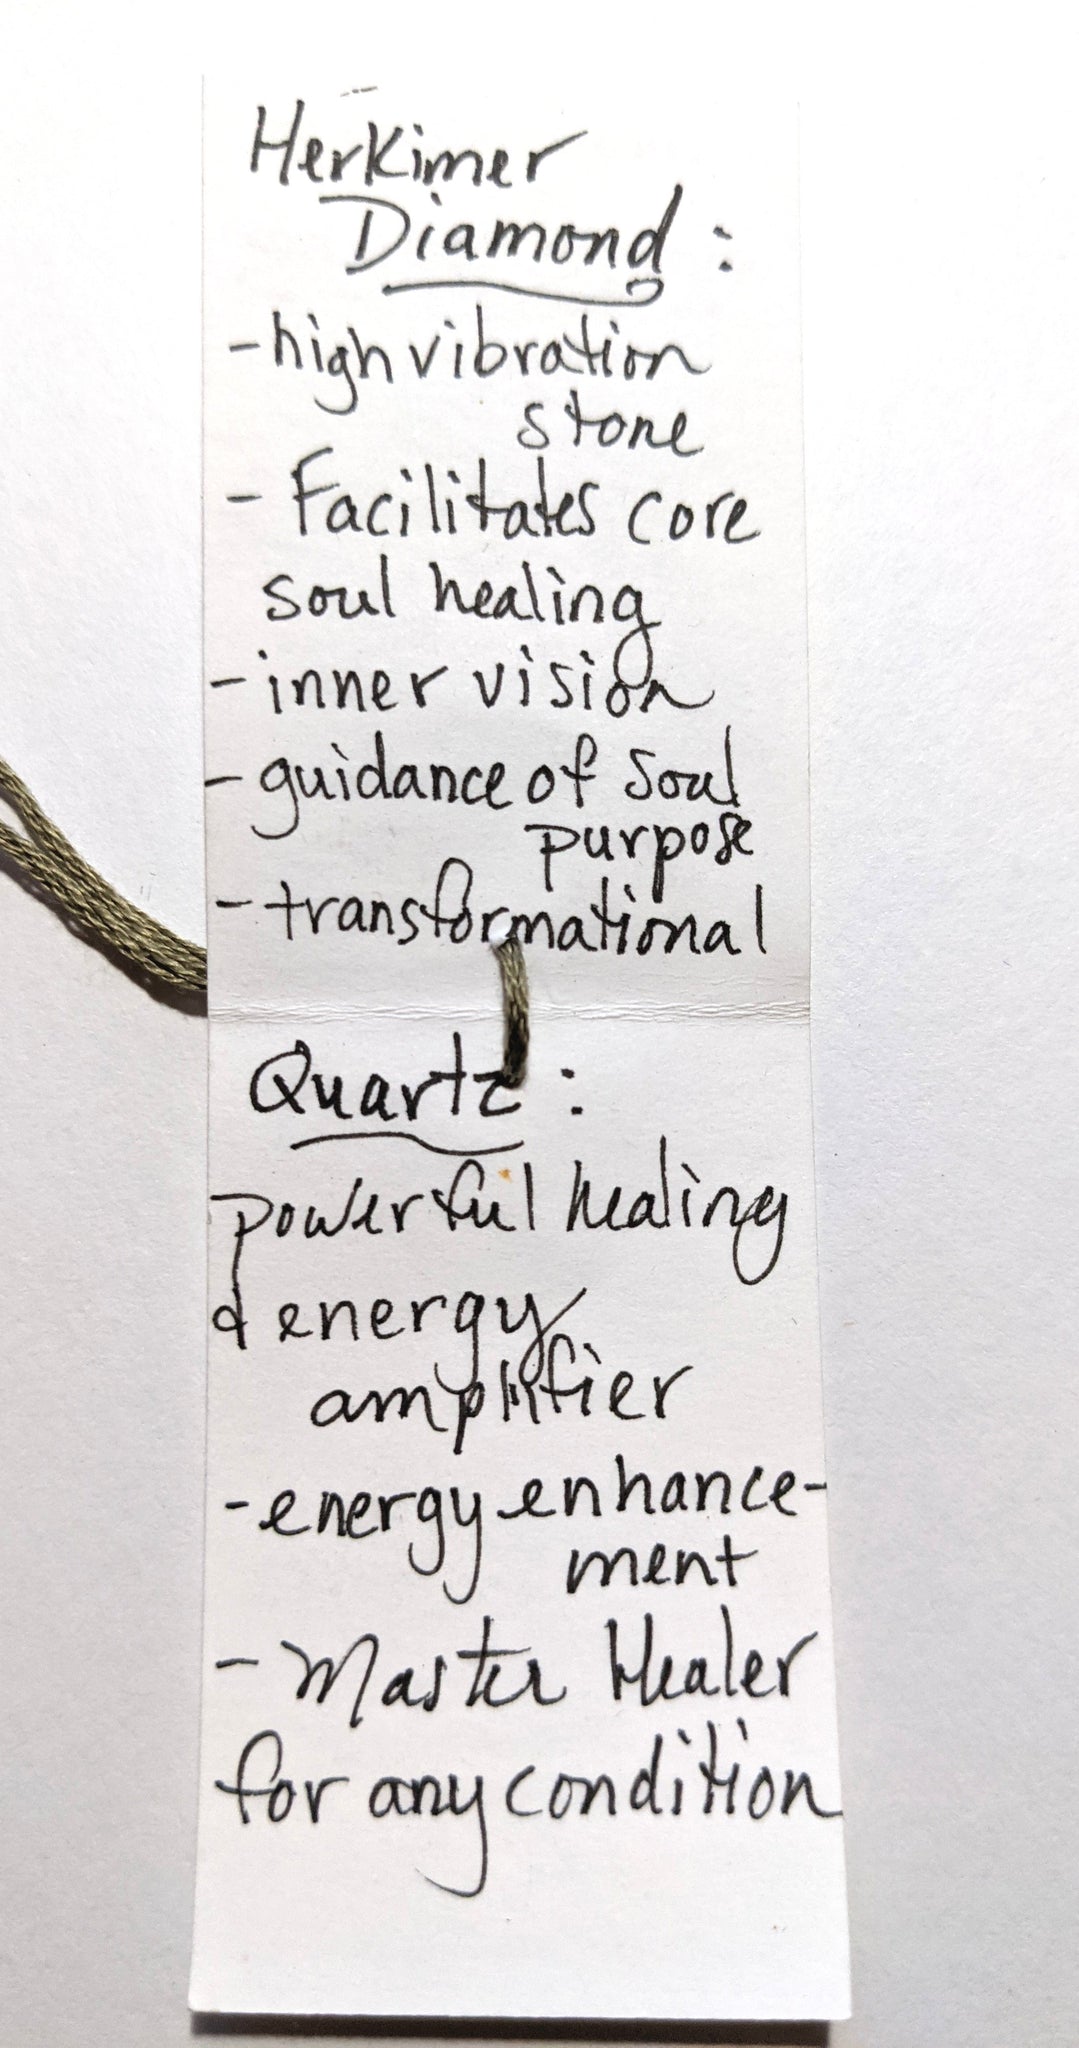 Herkimer
Diamond:
- high vibration
stone
- Facilitates core
soul healing
- inner vision
- guidance of soul
purpose
- transformational
Quartz:
powerful healing
& energy
amplifier
- energy enhance-
ment
- Master Healer
for any condition